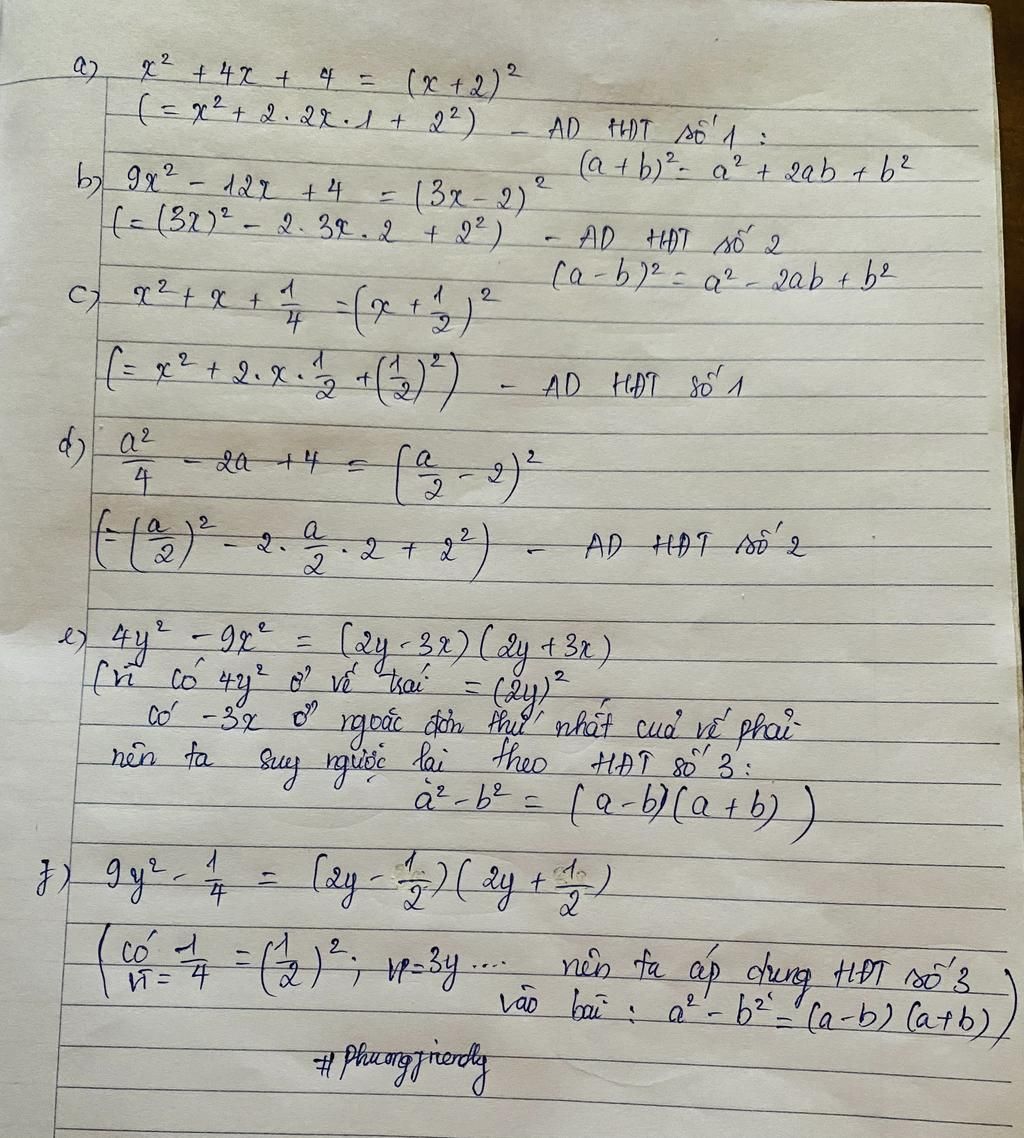 a) x² + 4x + 4 = (x + 2)²
(= x² + 2 . 2x . 1 + 2²) - AD HĐT số 1 :
(a + b)² = a² + 2ab + b²
b) 9x² - 12x + 4 = (3x - 2)²
(= (3x)² - 2 . 3x . 2 + 2²) - AD HĐT số 2
(a - b)² = a² - 2ab + b²
c) x² + x + 1/4 = (x + 1/2)²
(= x² + 2 . x . 1/2 + (1/2)²) - AD HĐT số 1
d) a²/4 - 2a + 4 = (a/2 - 2)²
(= (a/2)² - 2 . a/2 . 2 + 2²) - AD HĐT số 2
e) 4y² - 9x² = (2y - 3x) (2y + 3x)
(vì có 4y² ở vế trái = (2y)²
có -3x ở ngoặc đơn thứ nhất của vế phải
nên ta suy ngược lại theo HĐT số 3 :
a² - b² = (a - b) (a + b) )
f) 9y² - 1/4 = (2y - 1/2) (2y + 1/2)
(có VT = 1/4 = (1/2)² ; VP = 3y .... nên ta áp dụng HĐT số 3
vào bài : a² - b² = (a - b) (a + b) )
# Phuongfriendly